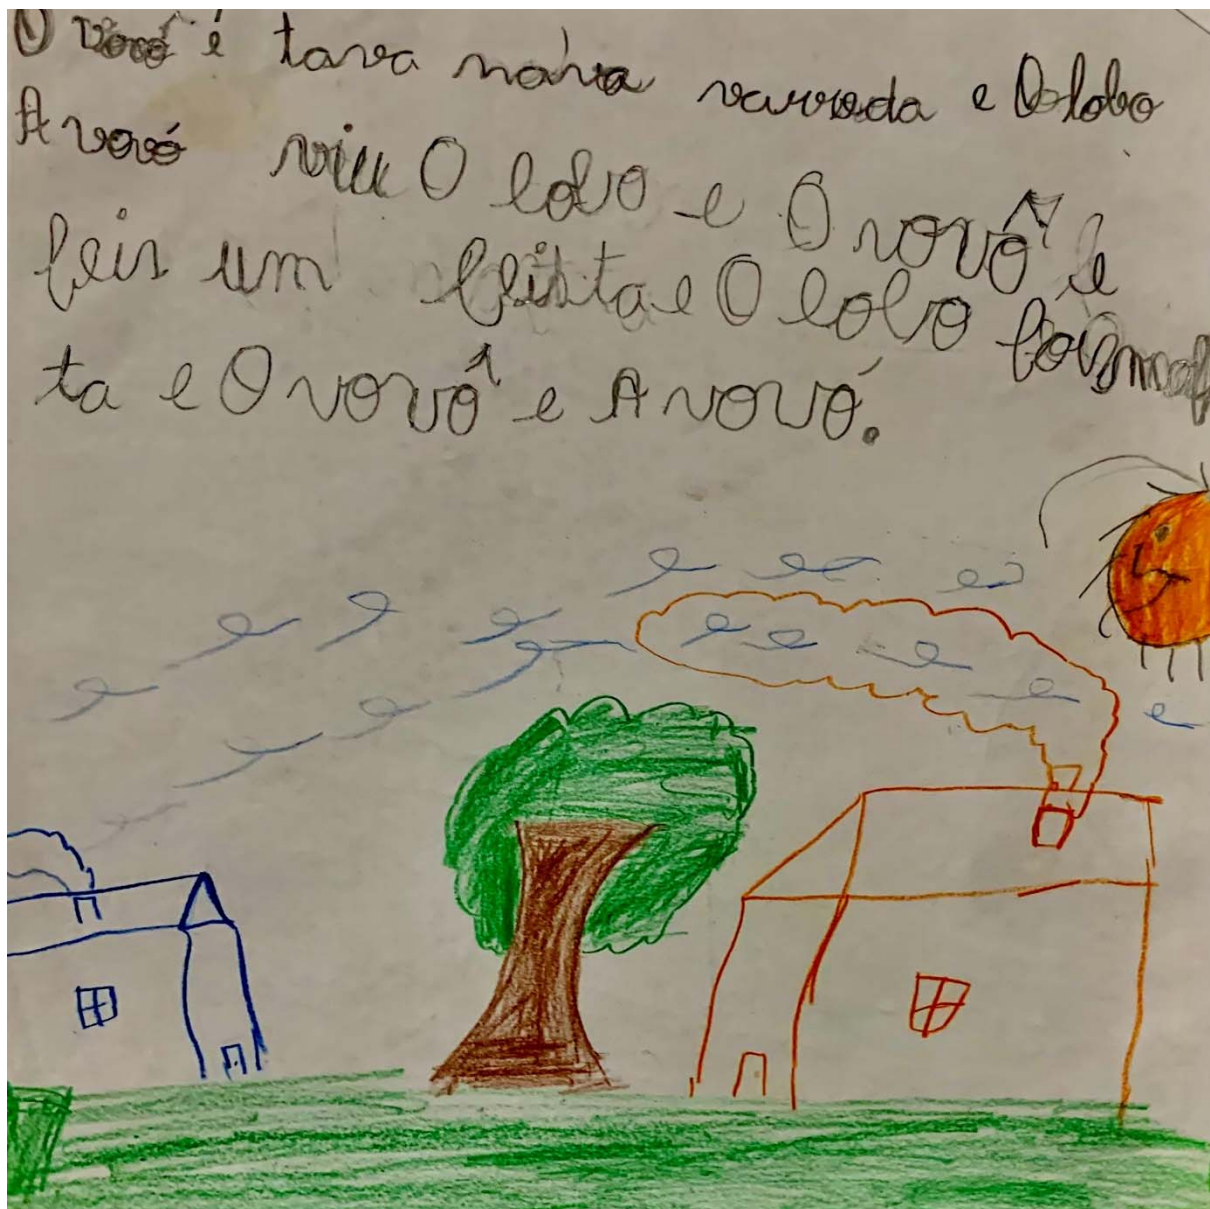 O vovô é tava na varrada e O lobo
A vovó viu O lobo e O vovô e
feis um feista e O lobo foi
ta e O vovô e A vovó.